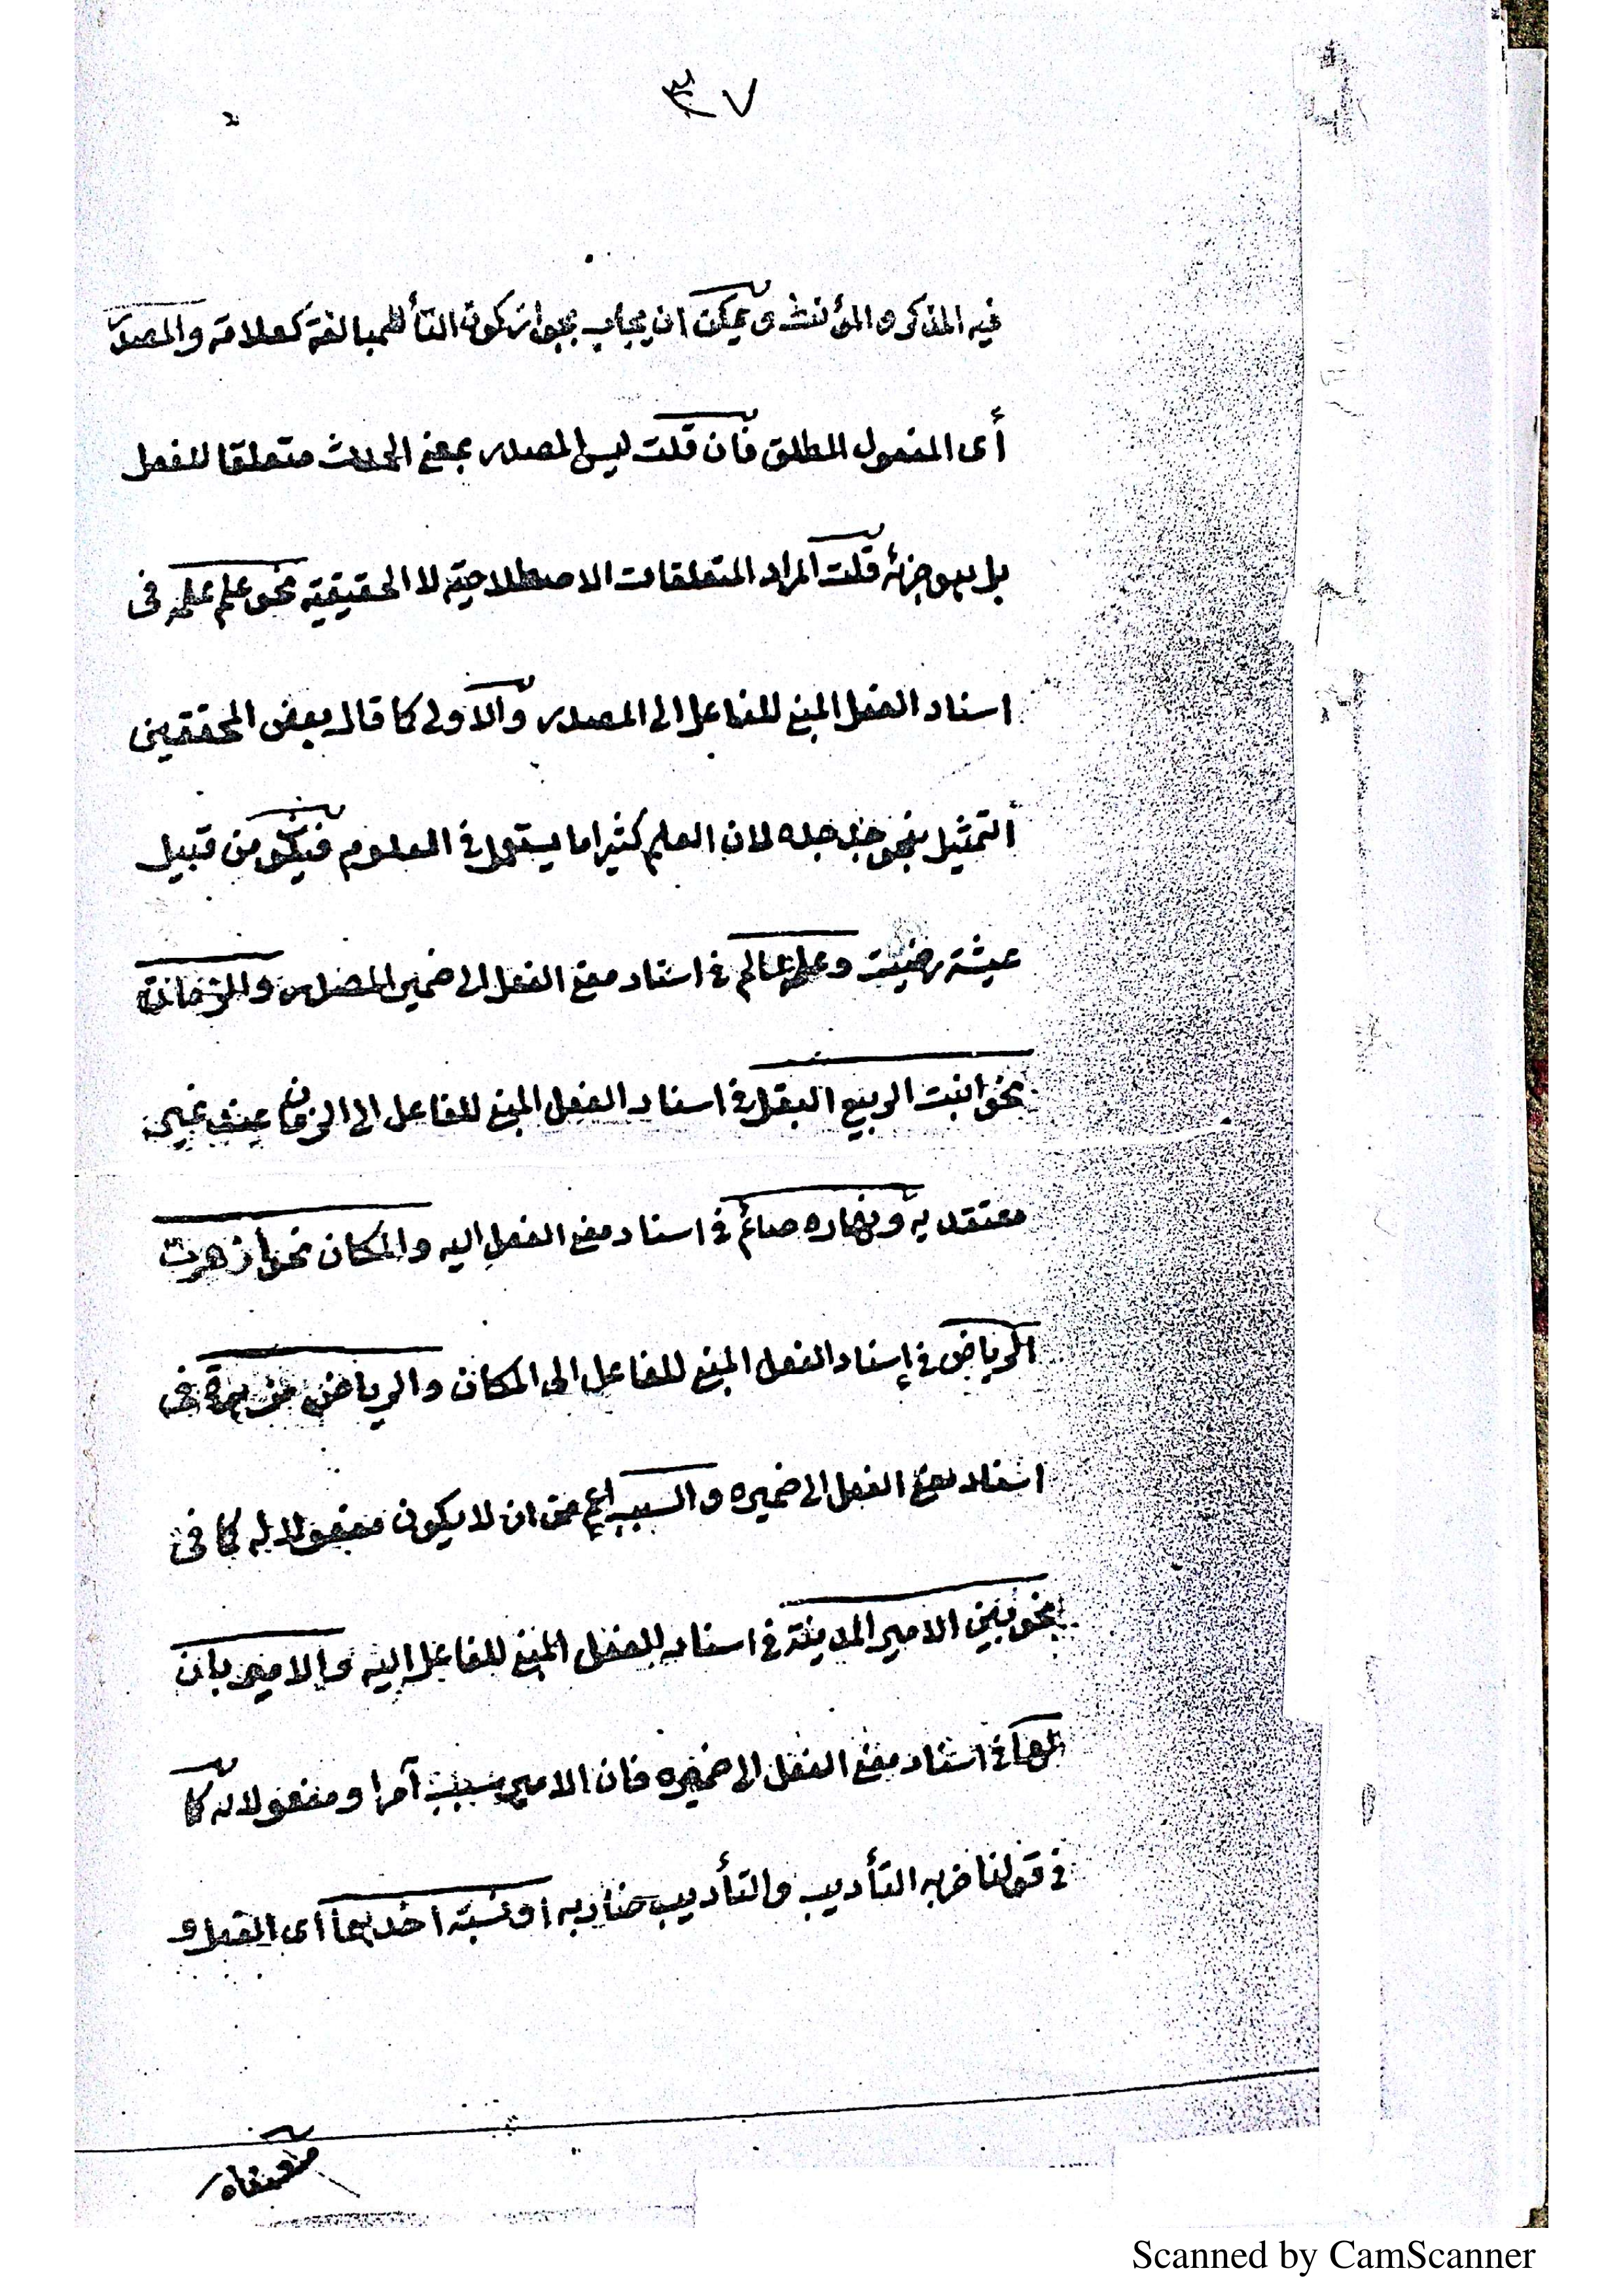 ٣٧
فيه المذكر و المؤنث و يمكن ان يجاب بجواز كون التأ للمبالغة كعلامة والمصدر
أى المفعول المطلق فان قلت ليس المصدر بمعنى الحدث متعلقا للفعل
بل هو جزئه قلت المراد المتعلقات الاصطلاحية لا الحقيقية نحو علم علمه فى
اسناد الفعل المبنى للفاعل الى المصدر والاولى كما قال بعض المحققين
التمثيل بنحو جد جده لان العلم كثيرا ما يستعمل فى المعلوم فيكون من قبيل
عيشة رضيت وعلمه عالم فى اسناد معنى الفعل الى ضمير المصدر والزمان
نحو انبت الربيع البقل فى اسناد الفعل المبنى للفاعل الى الزمان عند غير
معتقد به ونهاره صائم فى اسناد معنى الفعل اليه والمكان نحو ازهرت
الرياض فى إسناد الفعل المبنى للفاعل الى المكان والرياض مزهرة فى
اسناد معنى الفعل الى ضميره والسبب اعم من ان لا يكون مفعولا له كما فى
نحو بنى الامير المدينة فى اسناد الفعل المبنى للفاعل اليه والامير بان
لها فى اسناد معنى الفعل الى ضميره فان الامير سبب آمرا و مفعولا له كما
فى قولنا ضربه التأديب والتأديب ضاربه او نسبة احدهما اى الفعل و
معناه
Scanned by CamScanner